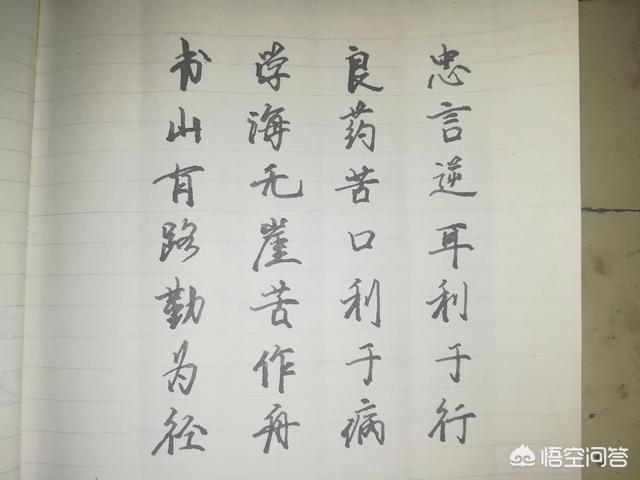 忠言逆耳利于行
良药苦口利于病
学海无崖苦作舟
书山有路勤为径
悟空问答